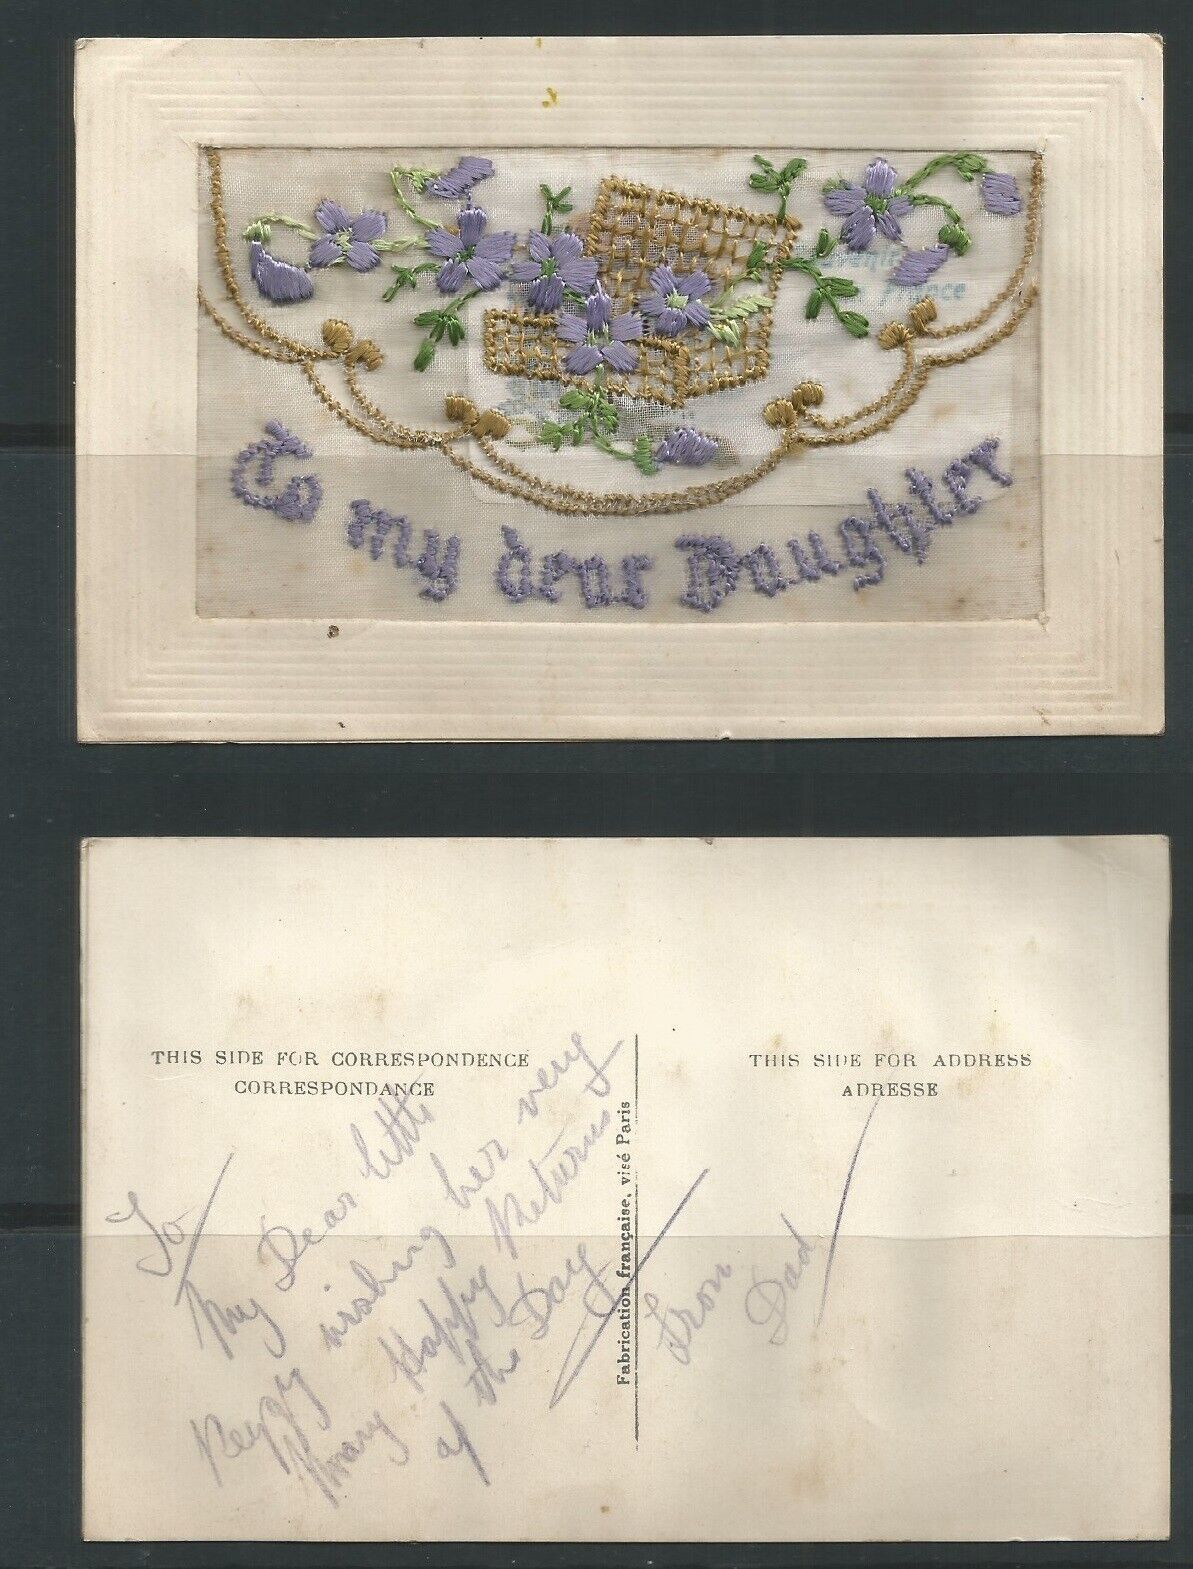 To my dear Daughter
Souvenir
France
THIS SIDE FOR CORRESPONDENCE
CORRESPONDANCE
THIS SIDE FOR ADDRESS
ADRESSE
Fabrication française, visé Paris
To
My Dear little
wishing her very
Many Happy Returns
of the Day
From
Dad